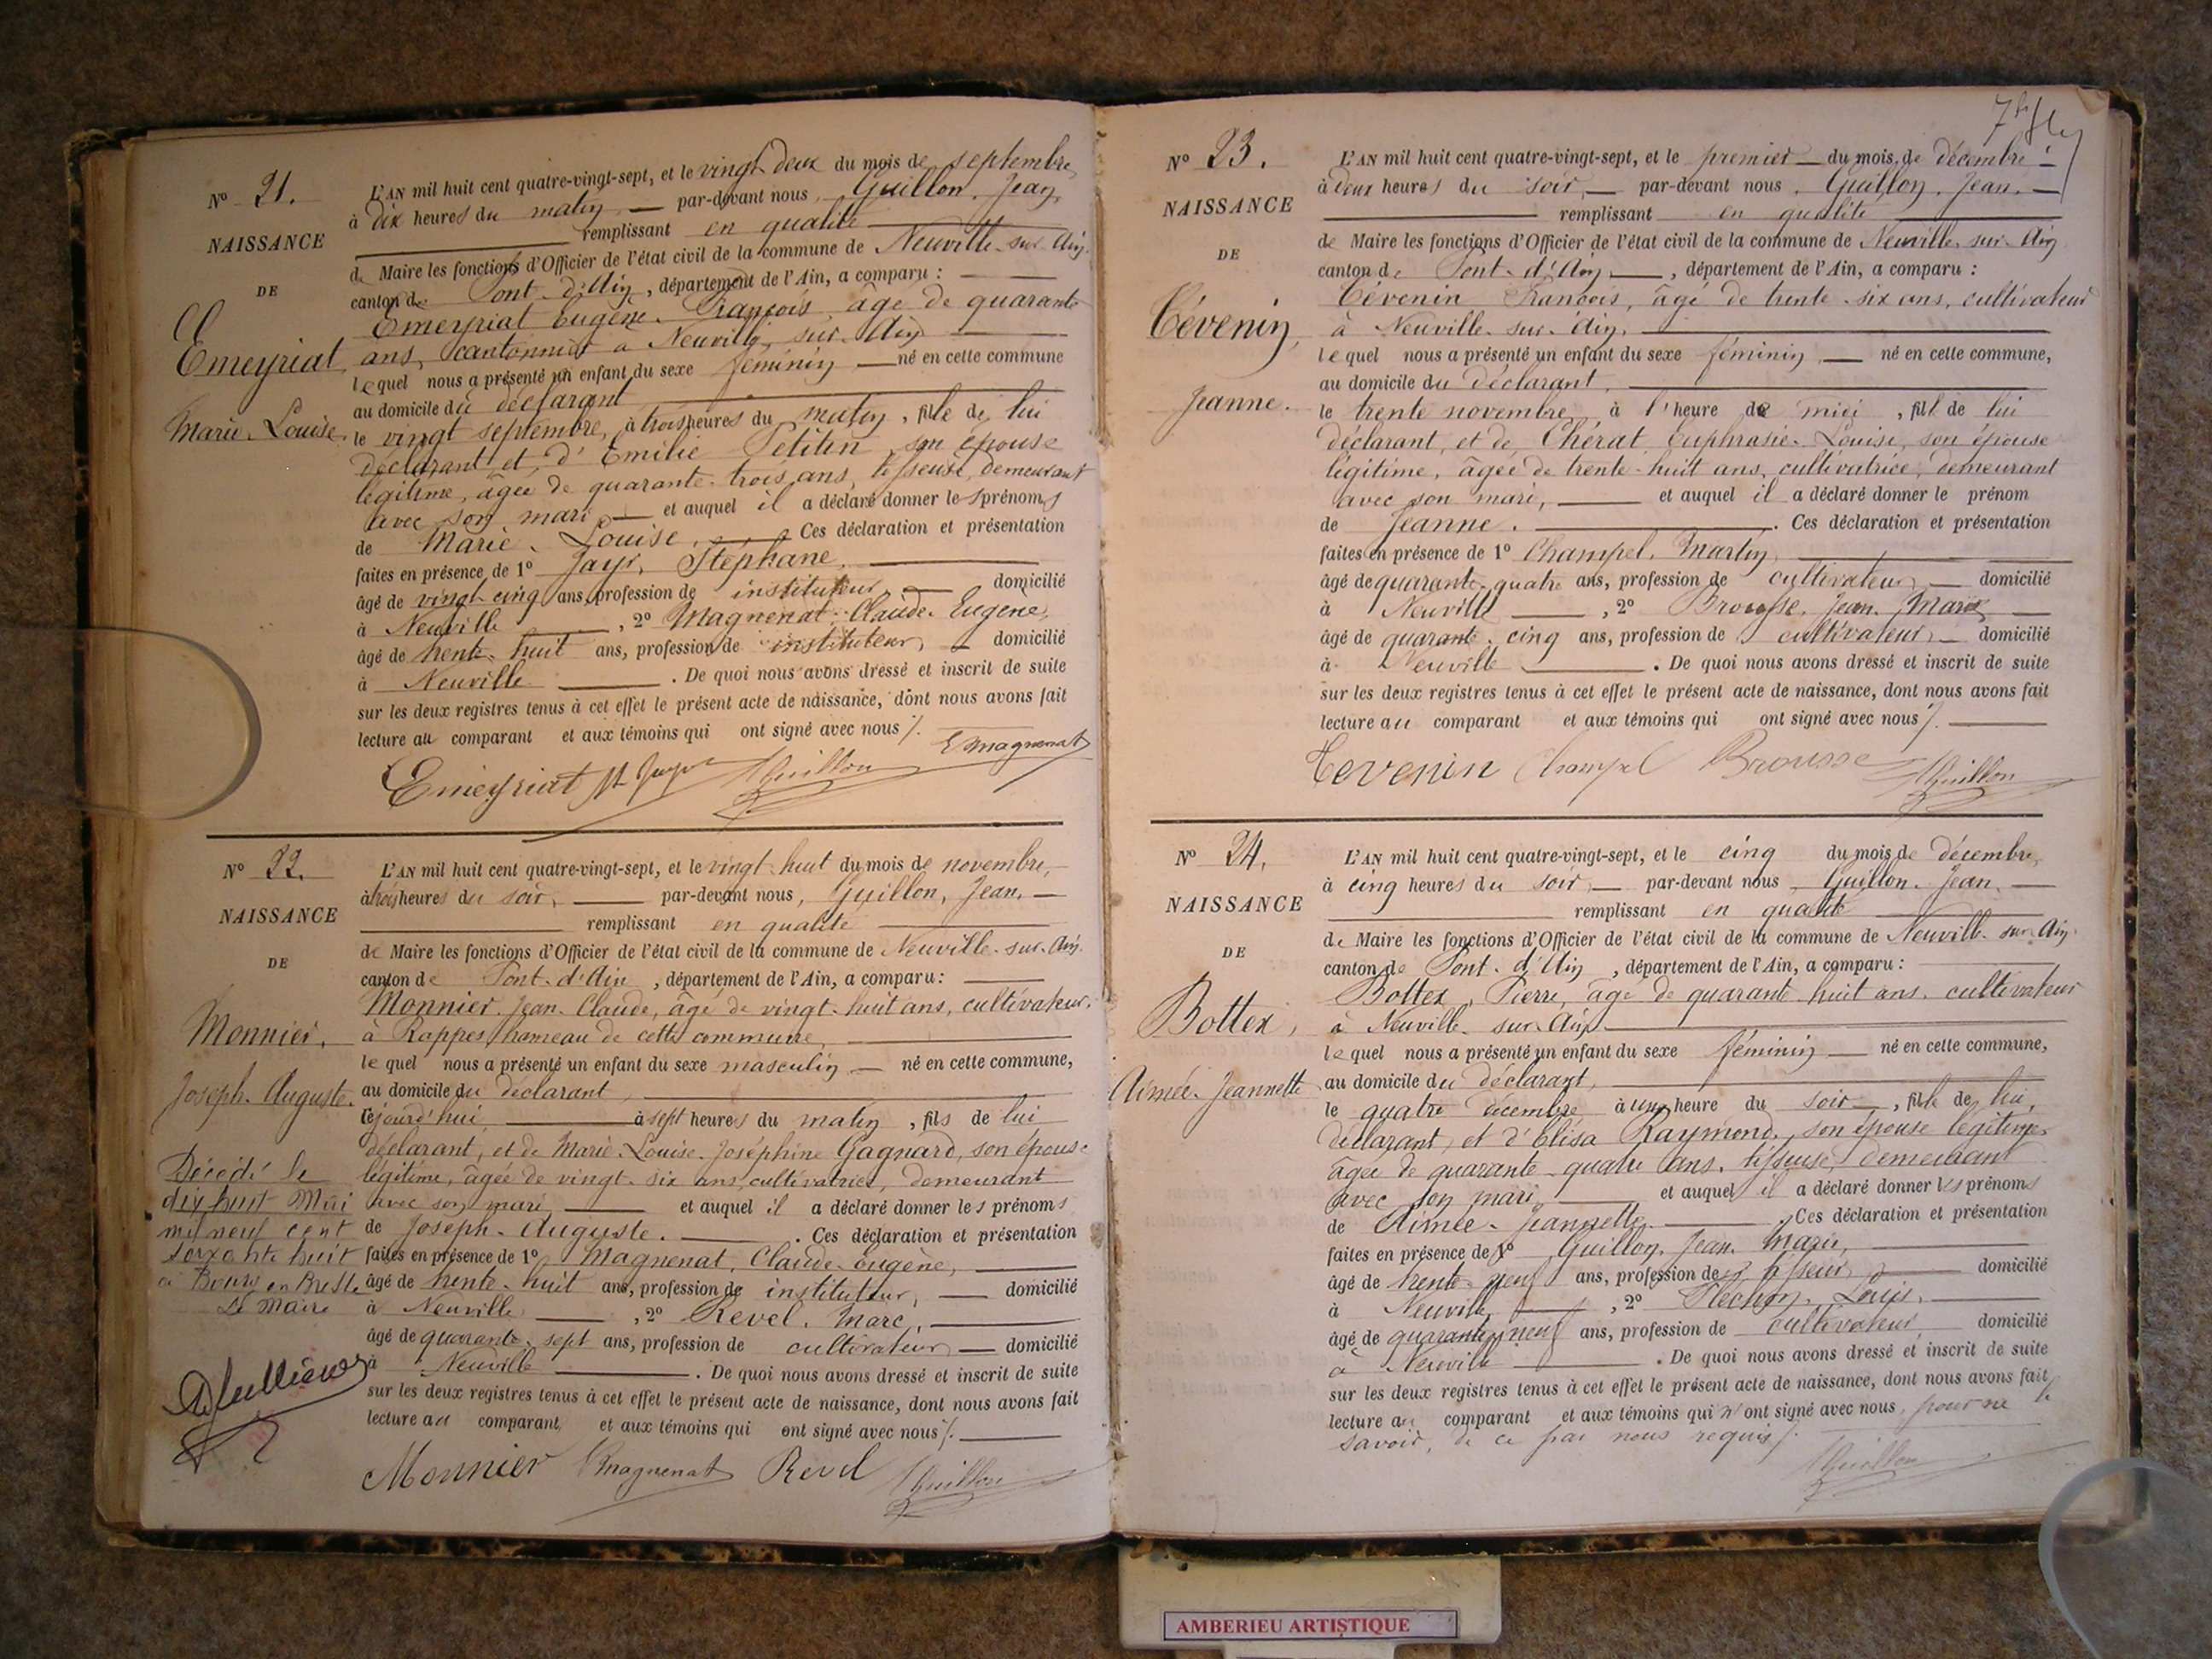 N° 21.
NAISSANCE
DE
Emeyriat
Marie-Louise.
L'AN mil huit cent quatre-vingt-sept, et le vingt deux du mois de septembre
à dix heures du matin — par-devant nous, Guillon, Jean,
remplissant en qualité
de Maire les fonctions d'Officier de l'état civil de la commune de Neuville-sur-Ain.
canton de Pont-d'Ain, département de l'Ain, a comparu :
Emeyriat Eugène-François, âgé de quarante
ans, cantonnier à Neuville-sur-Ain
lequel nous a présenté un enfant du sexe féminin — né en cette commune
au domicile du déclarant
le vingt septembre, à trois heures du matin, fille de lui
déclarant et d'Emilie Petitin son épouse
légitime, âgée de quarante-trois ans, tisseuse, demeurant
avec son mari — et auquel il a déclaré donner les prénoms
de Marie-Louise. Ces déclaration et présentation
faites en présence de 1° Jayr, Stéphane,
âgé de vingt-cinq ans, profession de instituteur, — domicilié
à Neuville, 2° Magnenat Claude-Eugène,
âgé de trente-huit ans, profession de instituteur, — domicilié
à Neuville. De quoi nous avons dressé et inscrit de suite
sur les deux registres tenus à cet effet le présent acte de naissance, dont nous avons fait
lecture au comparant et aux témoins qui ont signé avec nous ./.
Emeyriat St Jayr Guillon E Magnenat
N° 22.
NAISSANCE
DE
Monnier,
Joseph-Auguste.
Décédé le
dix huit Mai
mil neuf cent
soixante huit
à Bourg en Bresse
Le Maire
L'AN mil huit cent quatre-vingt-sept, et le vingt-huit du mois de novembre,
à trois heures du soir, — par-devant nous, Guillon, Jean, —
remplissant en qualité
de Maire les fonctions d'Officier de l'état civil de la commune de Neuville-sur-Ain.
canton de Pont-d'Ain, département de l'Ain, a comparu :
Monnier Jean-Claude, âgé de vingt-huit ans, cultivateur
à Rappes, hameau de cette commune,
lequel nous a présenté un enfant du sexe masculin — né en cette commune,
au domicile du déclarant,
cejourd'hui, à sept heures du matin, fils de lui
déclarant, et de Marie-Louise-Joséphine Gagnard, son épouse
légitime, âgée de vingt-six ans, cultivatrice, demeurant
avec son mari — et auquel il a déclaré donner les prénoms
de Joseph-Auguste. Ces déclaration et présentation
faites en présence de 1° Magnenat, Claude-Eugène,
âgé de trente-huit ans, profession de instituteur, — domicilié
à Neuville, 2° Revel, Marc,
âgé de quarante-sept ans, profession de cultivateur — domicilié
à Neuville. De quoi nous avons dressé et inscrit de suite
sur les deux registres tenus à cet effet le présent acte de naissance, dont nous avons fait
lecture au comparant et aux témoins qui ont signé avec nous ./.
Monnier Magnenat Revel Guillon
N° 23.
NAISSANCE
DE
Tévenin,
Jeanne.
L'AN mil huit cent quatre-vingt-sept, et le premier — du mois de décembre
à deux heures du soir, — par-devant nous, Guillon, Jean, —
remplissant en qualité
de Maire les fonctions d'Officier de l'état civil de la commune de Neuville-sur-Ain
canton de Pont-d'Ain, département de l'Ain, a comparu :
Tévenin François, âgé de trente-six ans, cultivateur
à Neuville-sur-Ain,
lequel nous a présenté un enfant du sexe féminin, — né en cette commune,
au domicile du déclarant,
le trente novembre, à l'heure de midi, fille de lui
déclarant, et de Chérat, Euphrasie-Louise, son épouse
légitime, âgée de trente-huit ans, cultivatrice, demeurant
avec son mari, — et auquel il a déclaré donner le prénom
de Jeanne. Ces déclaration et présentation
faites en présence de 1° Champel, Martin,
âgé de quarante-quatre ans, profession de cultivateur, — domicilié
à Neuville, 2° Brousse, Jean-Marie,
âgé de quarante-cinq ans, profession de cultivateur, — domicilié
à Neuville. De quoi nous avons dressé et inscrit de suite
sur les deux registres tenus à cet effet le présent acte de naissance, dont nous avons fait
lecture au comparant et aux témoins qui ont signé avec nous ./.
Tevenin Champel Brousse Guillon
N° 24.
NAISSANCE
DE
Bottex,
Aimée-Jeannette
L'AN mil huit cent quatre-vingt-sept, et le cinq du mois de décembre,
à cinq heures du soir, — par-devant nous, Guillon, Jean, —
remplissant en qualité
de Maire les fonctions d'Officier de l'état civil de la commune de Neuville-sur-Ain
canton de Pont-d'Ain, département de l'Ain, a comparu :
Bottex, Pierre, âgé de quarante-huit ans, cultivateur
à Neuville-sur-Ain
lequel nous a présenté un enfant du sexe féminin — né en cette commune,
au domicile du déclarant,
le quatre décembre, à une heure du soir, fille de lui,
déclarant, et d'Elisa Raymond, son épouse légitime,
âgée de quarante-quatre ans, tisseuse, demeurant
avec son mari, — et auquel il a déclaré donner les prénoms
de Aimée-Jeannette. Ces déclaration et présentation
faites en présence de 1° Guillon, Jean-Marie,
âgé de trente-neuf ans, profession de tisseur, domicilié
à Neuville, 2° Fléchon, Louis,
âgé de quarante-neuf ans, profession de cultivateur domicilié
à Neuville. De quoi nous avons dressé et inscrit de suite
sur les deux registres tenus à cet effet le présent acte de naissance, dont nous avons fait
lecture au comparant et aux témoins qui n'ont signé avec nous, pour ne le
savoir, de ce par nous requis ./.
Guillon
AMBERIEU ARTISTIQUE